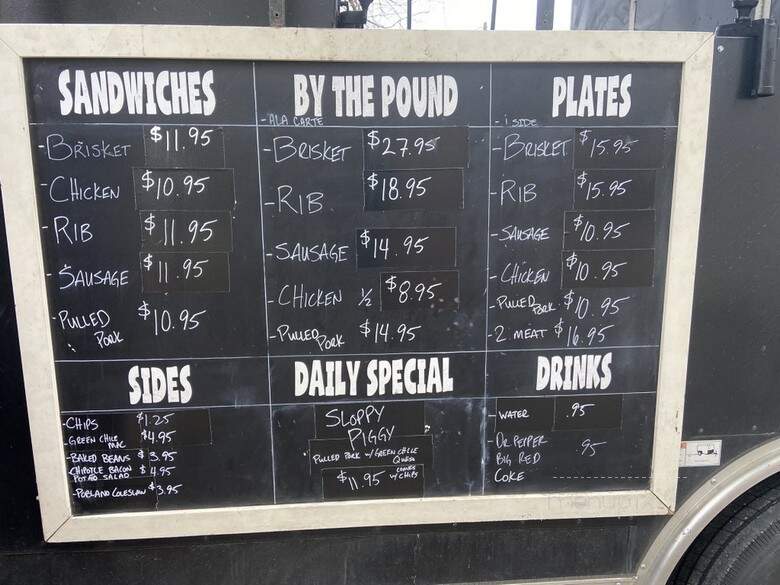 SANDWICHES
-BRISKET $11.95
-CHICKEN $10.95
-RIB $11.95
-SAUSAGE $11.95
-PULLED PORK $10.95
BY THE POUND
-ALA CARTE
-BRISKET $27.95
-RIB $18.95
-SAUSAGE $14.95
-CHICKEN ½ $8.95
-PULLED PORK $14.95
PLATES
-1 SIDE
-BRISKET $15.95
-RIB $15.95
-SAUSAGE $10.95
-CHICKEN $10.95
-PULLED PORK $10.95
-2 MEAT $16.95
SIDES
-CHIPS $1.25
-GREEN CHILE MAC $4.95
-BAKED BEANS $3.95
-CHIPOTLE BACON POTATO SALAD $4.95
-POBLANO COLESLAW $3.95
DAILY SPECIAL
SLOPPY
PIGGY
PULLED PORK W/ GREEN CHILE
QUESO
$11.95 COMES W/ CHIPS
DRINKS
-WATER .95
-DR PEPPER
BIG RED .95
COKE